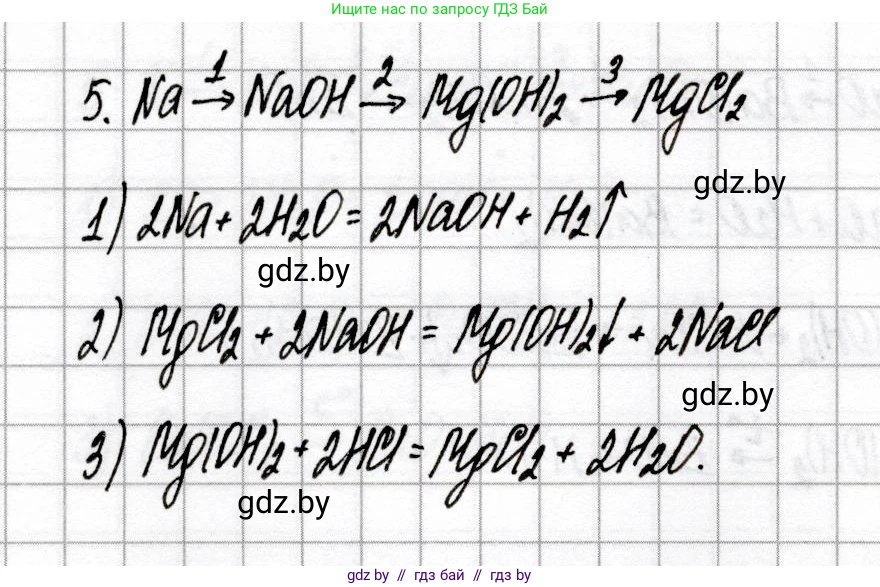 Ищите нас по запросу ГДЗ БАЙ
5. Na →¹ NaOH →² Mg(OH)₂ →³ MgCl₂
gdz.by
1) 2Na + 2H₂O = 2NaOH + H₂↑
gdz.by
2) MgCl₂ + 2NaOH = Mg(OH)₂↓ + 2NaCl
gdz.by
3) Mg(OH)₂ + 2HCl = MgCl₂ + 2H₂O.
gdz.by
gdz by // гдз бай // gdz by